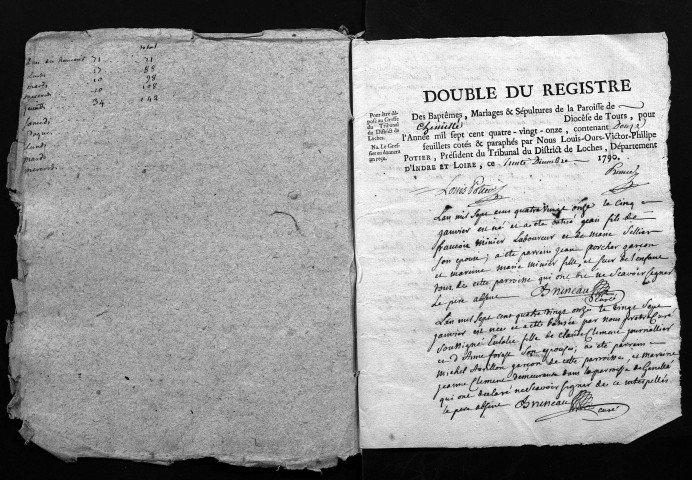 total
71 71
17 88
10 98
10 108
jeudi 34 142
Samedi
Lundi
Mardi
DOUBLE DU REGISTRE
Pour être déposé au Greffe du Tribunal du District de Loches.
Na. Le Greffier en donnera un reçu.
Des Baptêmes, Mariages & Sépultures de la Paroisse de
Diocèse de Tours, pour
l'Année mil sept cent quatre-vingt-onze, contenant Douze
feuillets cotés & paraphés par Nous Louis-Ours-Victor-Philipe
POTIER, Président du Tribunal du District de Loches, Département
D'INDRE ET LOIRE, ce trente Décembre 1790.
Louis Potier
Lan mil sept cent quatre vingt onze le cinq
janvier est né et a ete batisé jean fils de
francois minier Laboureur et de marie Sellier
son epouse; a ete parrein jean porcher garçon
et mareine marie minier fille, et sœur de l'enfant
tous de cette parroisse qui ont dit ne scavoir signer
le père absent Bruneau
Curé
Lan mil sept cent quatre vingt onze le vingt sept
janvier est née et a ete batisée par nous pretre Curé
soussigné Eulalie fille de claude Clement journallier
et d'Anne forest son epouse; a ete parrein
michel garçon de cette parroisse, et mareine
jeanne Clement demeurante dans la parroisse de Genillé
qui ont declaré ne scavoir signer de ce interpellés
le pere absent Bruneau
curé